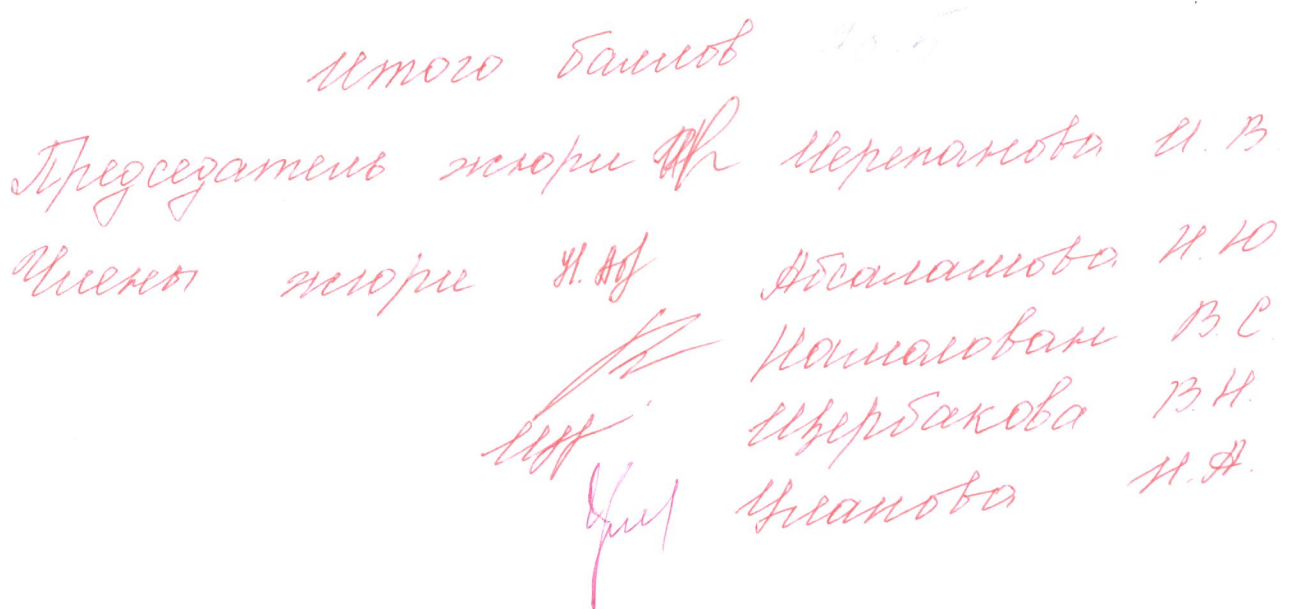 Итого баллов
Председатель жюри Черепанова И. В.
Члены жюри Н. Аб Абсалашова Н. Ю
Намолован В. С.
Щербакова В. Н.
Уланова Н. А.